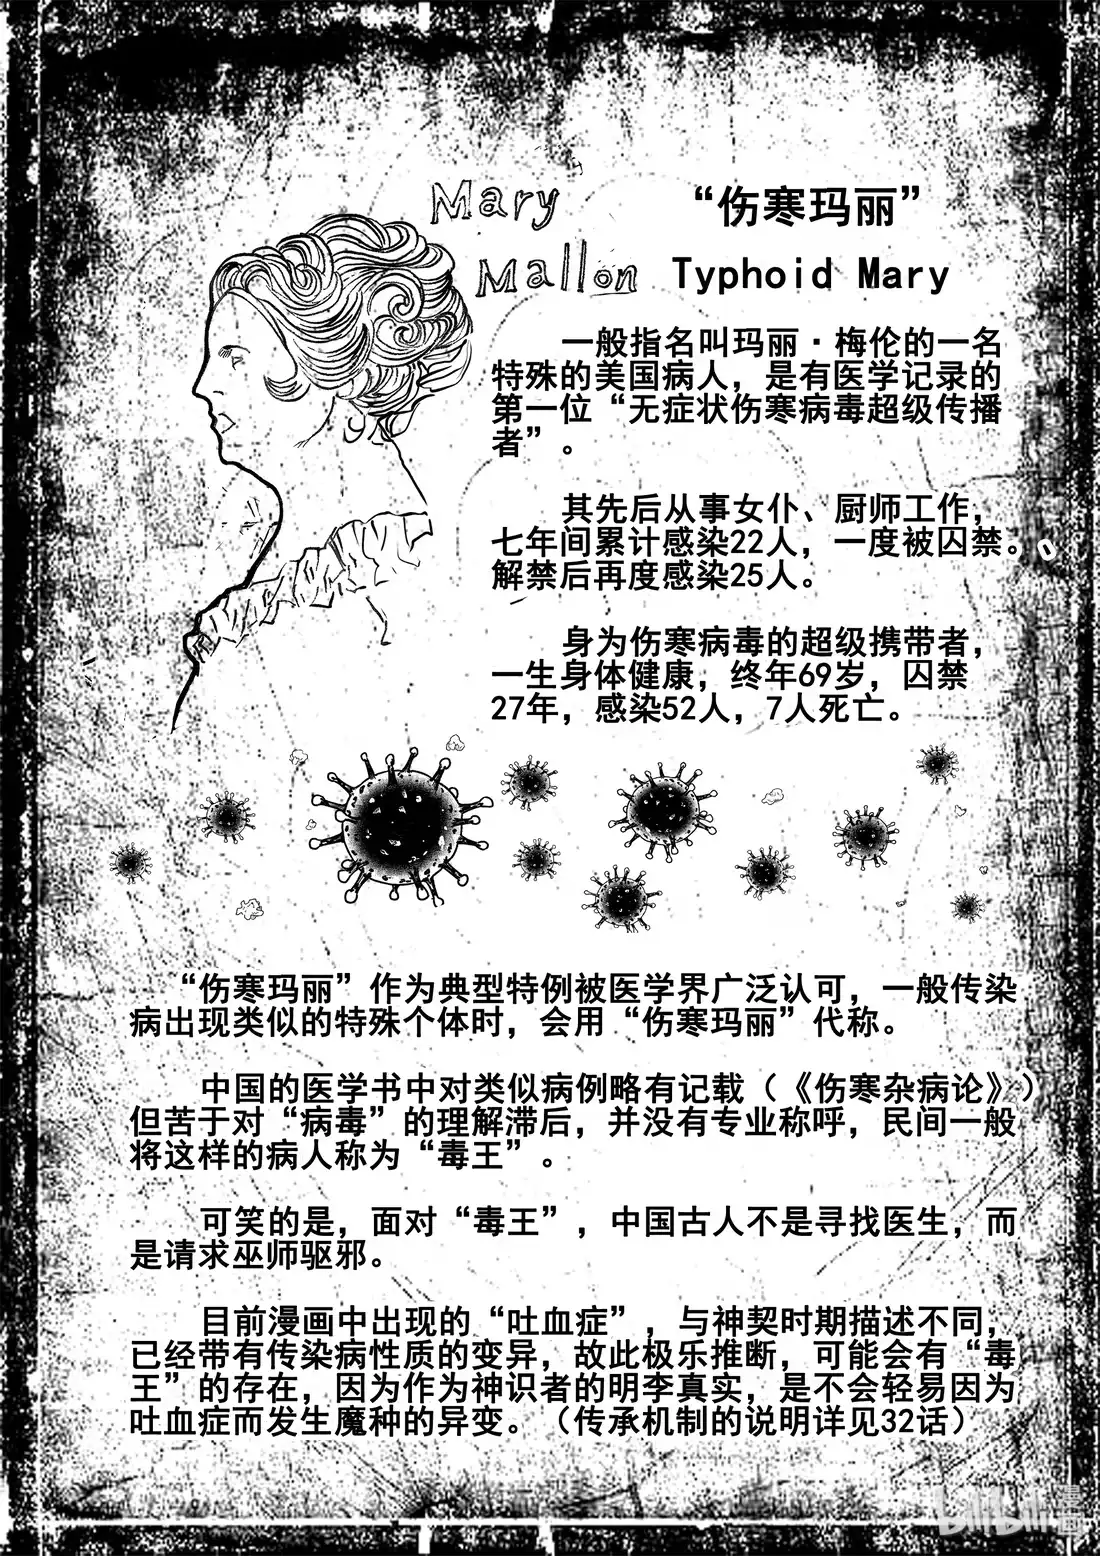 Mary
Mallon
“伤寒玛丽”
Typhoid Mary
一般指名叫玛丽·梅伦的一名
特殊的美国病人，是有医学记录的
第一位“无症状伤寒病毒超级传播
者”。
其先后从事女仆、厨师工作，
七年间累计感染22人，一度被囚禁。
解禁后再度感染25人。
身为伤寒病毒的超级携带者，
一生身体健康，终年69岁，囚禁
27年，感染52人，7人死亡。
“伤寒玛丽”作为典型特例被医学界广泛认可，一般传染
病出现类似的特殊个体时，会用“伤寒玛丽”代称。
中国的医学书中对类似病例略有记载（《伤寒杂病论》）
但苦于对“病毒”的理解滞后，并没有专业称呼，民间一般
将这样的病人称为“毒王”。
可笑的是，面对“毒王”，中国古人不是寻找医生，而
是请求巫师驱邪。
目前漫画中出现的“吐血症”，与神契时期描述不同，
已经带有传染病性质的变异，故此极乐推断，可能会有“毒
王”的存在，因为作为神识者的明李真实，是不会轻易因为
吐血症而发生魔种的异变。（传承机制的说明详见32话）
bilibili
漫画